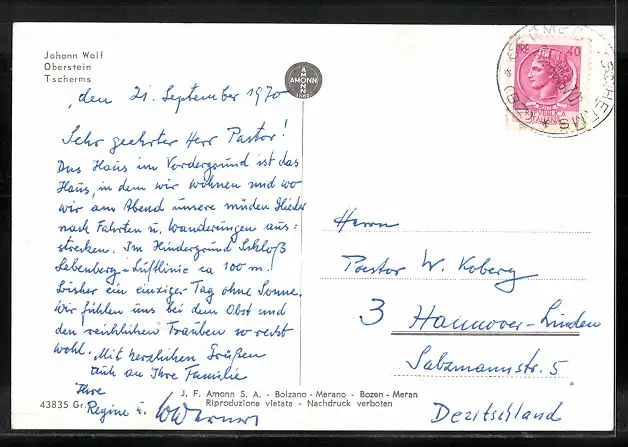 Johann Wolf
Oberstein
Tscherms
, den 21. September 1970
Sehr geehrter Herr Pastor!
Das Haus im Vordergrund ist das
Haus, in dem wir wohnen und wo
wir am Abend unsere müden Glieder
nach Fahrten u. Wanderungen aus=
strecken. Im Hindergrund Schloß
Lebenberg - Luftlinie ca 100 m.
Bisher ein einziger Tag ohne Sonne.
Wir fühlen uns bei dem Obst und
den reichlichen Trauben so recht
wohl. Mit herzlichen Grüßen
auch an Ihre Familie
Ihre
Regine u. Werner
43835 Gr.
AMONN
AMONN
1802
J. F. Amonn S. A. - Bolzano - Merano - Bozen - Meran
Riproduzione vietata - Nachdruck verboten
40
REPUBBLICA
ITALIANA
CERMES TSCHERMS * (BZ) *
Herrn
Pastor W. Koberg
3 Hannover-Linden
Salzmannstr. 5
Deutschland